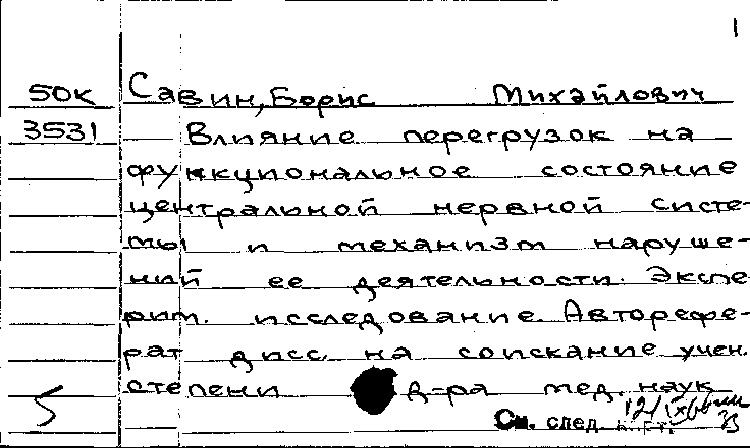 1
50К Савин, Борис Михайлович
3531 Влияние перегрузок на
функциональное состояние
центральной нервной систе-
мы и механизм наруше-
ний ее деятельности. Экспе
рим. исследование. Авторефе-
рат дисс. на соискание учен.
степени д-ра мед. наук
5 См. след.